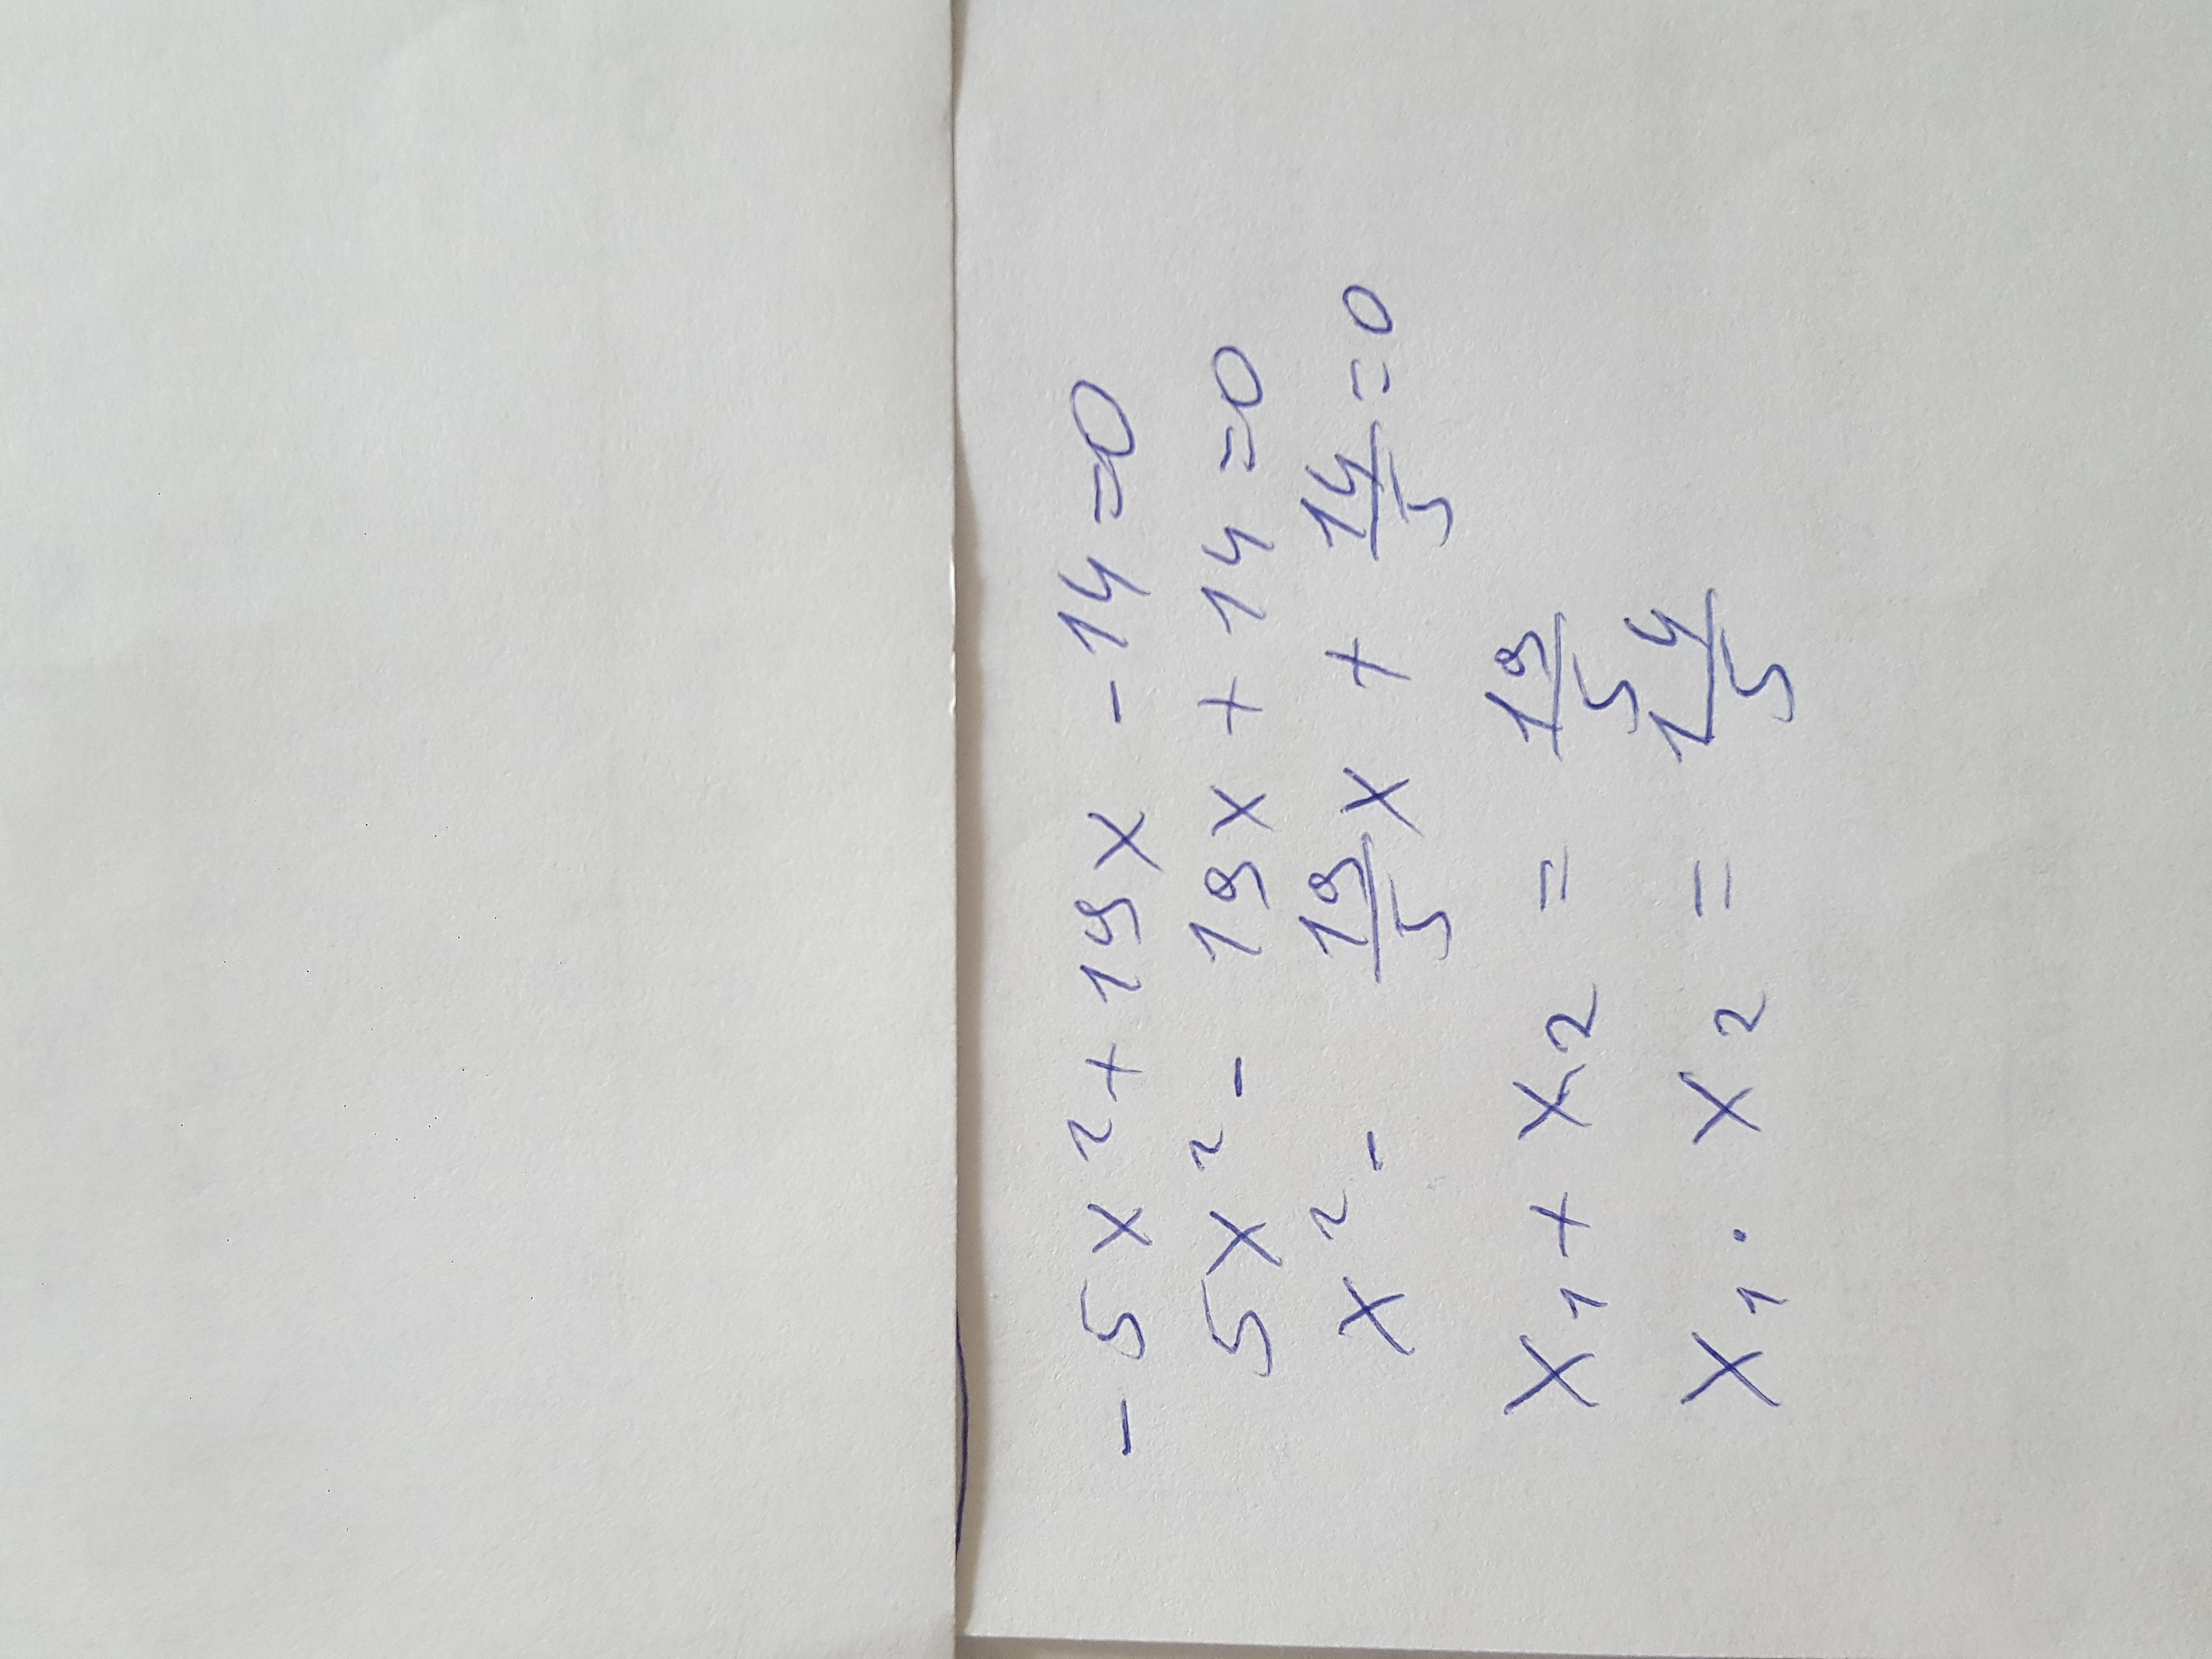 -5x²+19x-14=0
5x²-19x+14=0
x²-19/5x+14/5=0
x₁+x₂=19/5
x₁·x₂=14/5